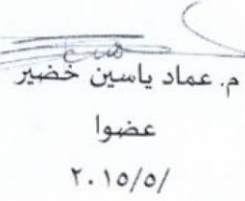 م. عماد ياسين خضير
عضوا
٢٠١٥/٥/